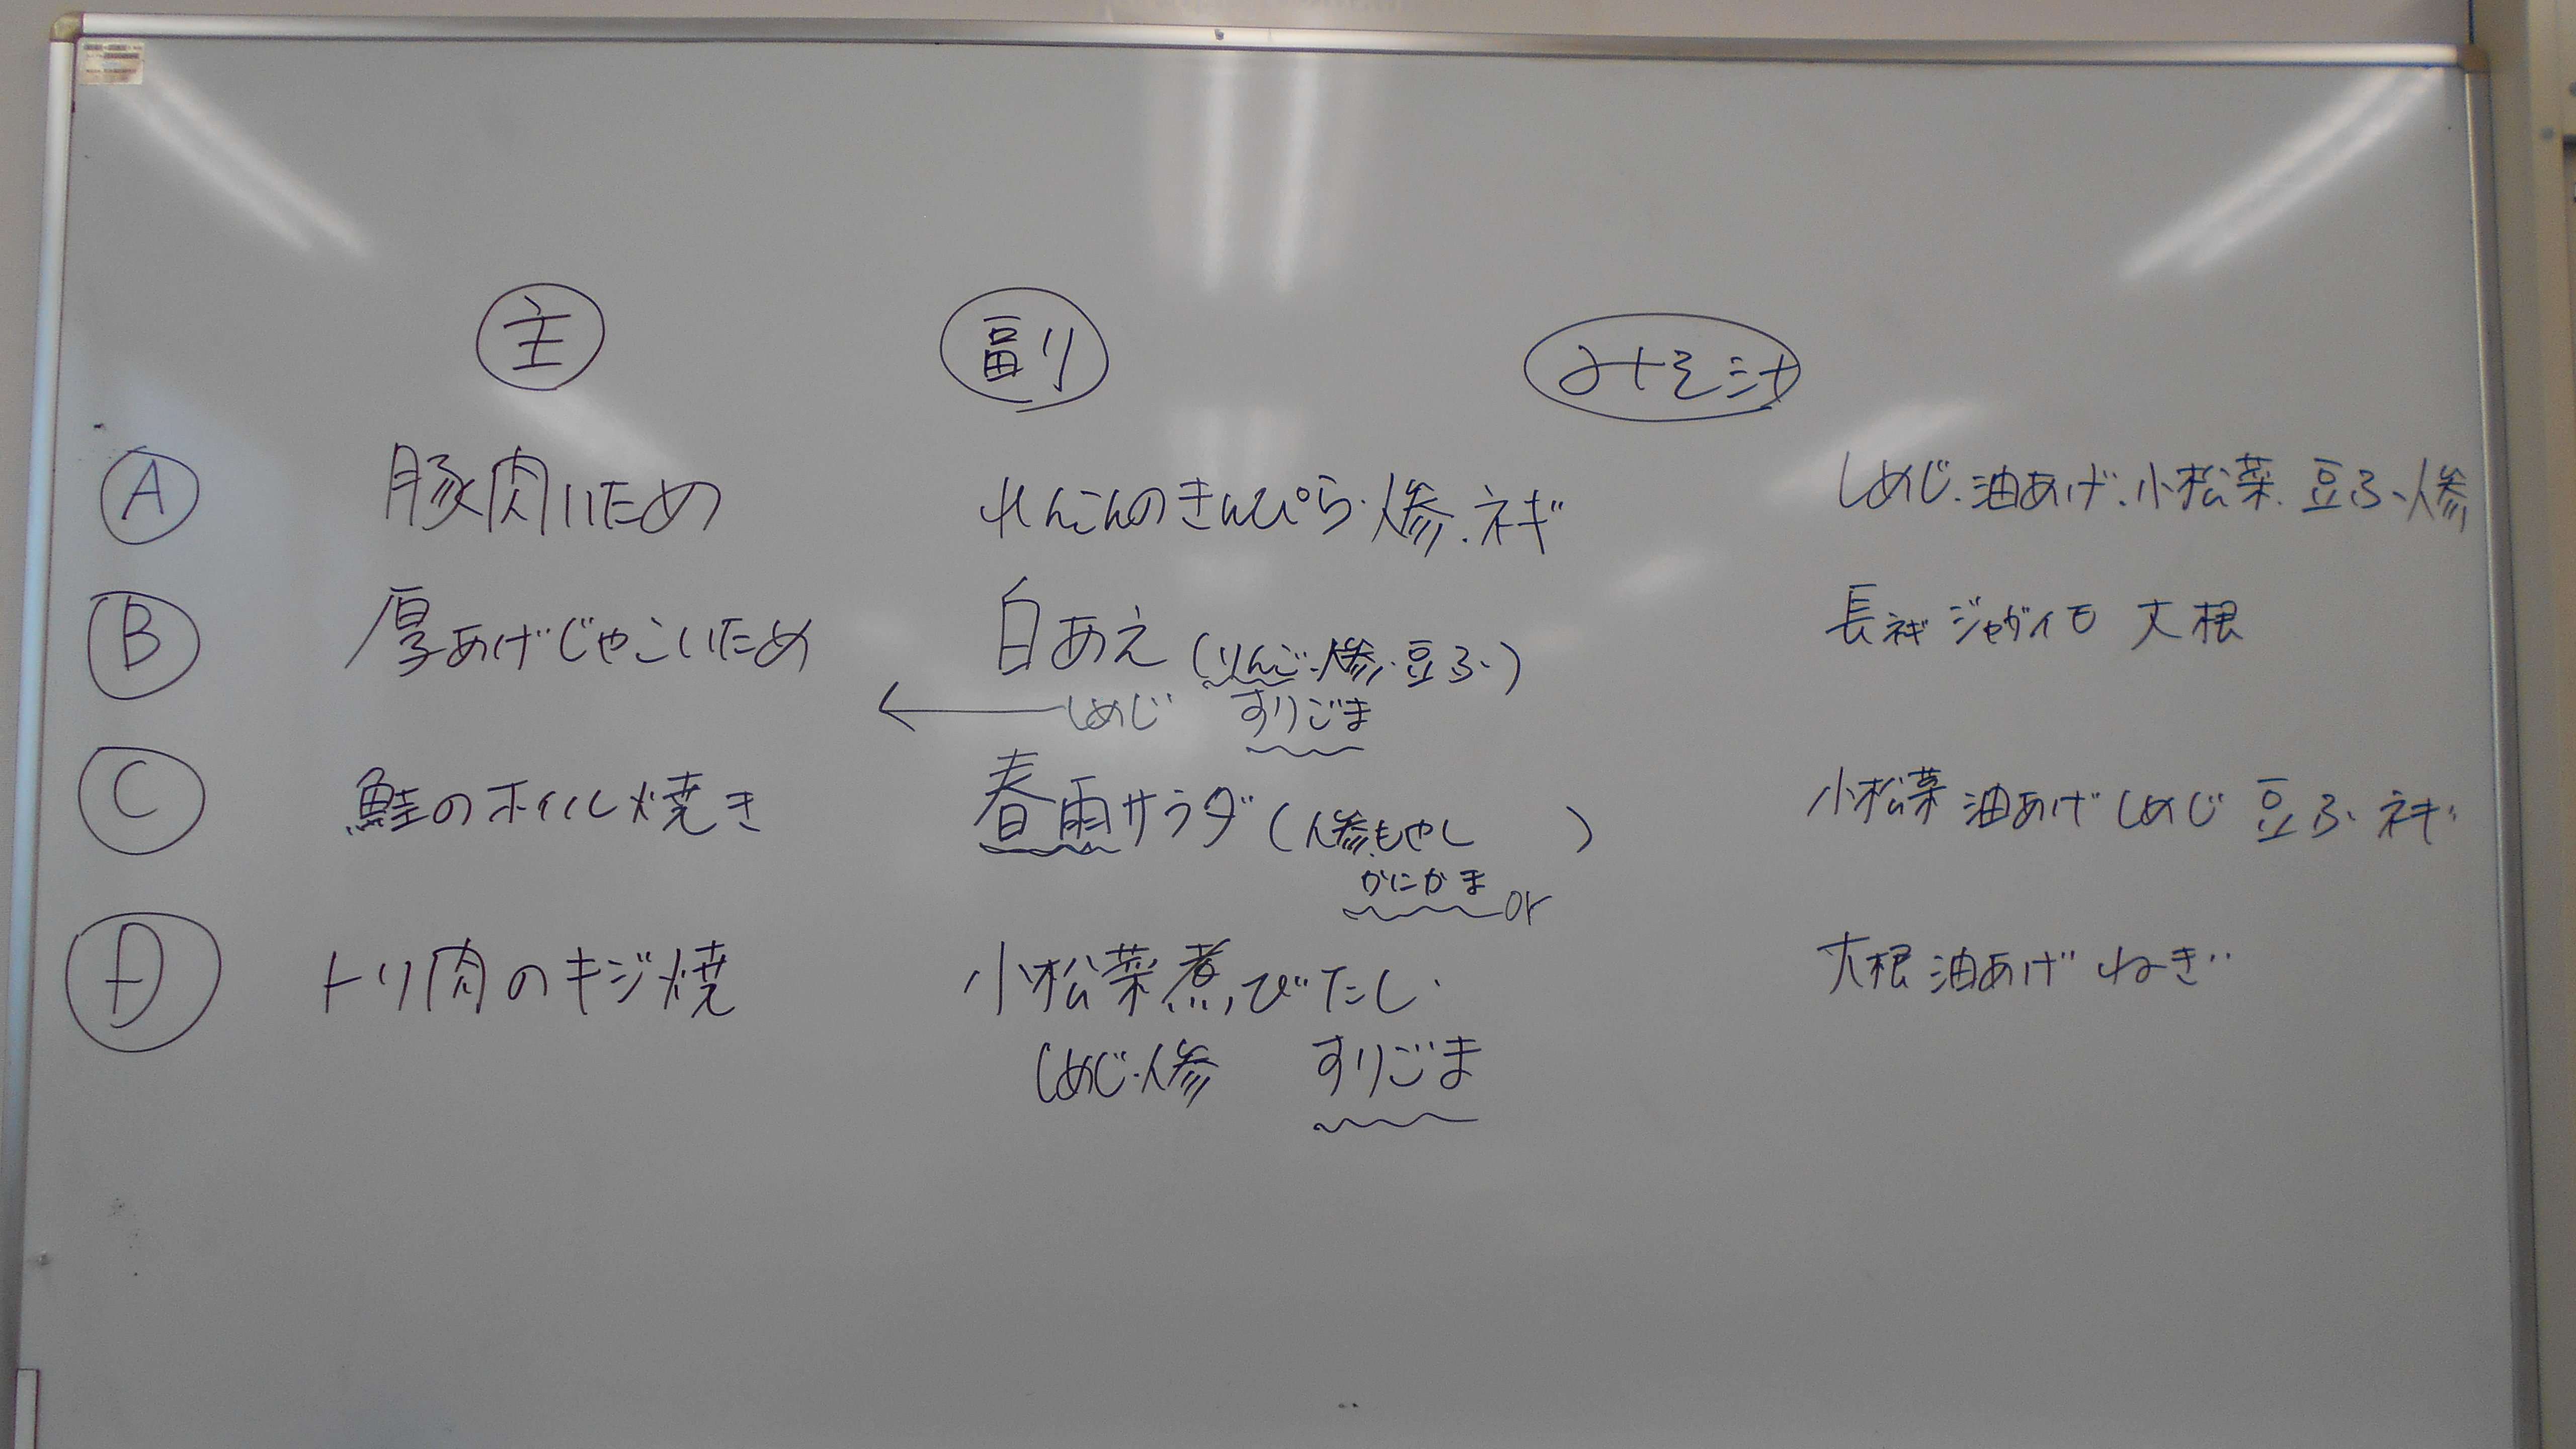 主 副 みそ汁
A 豚肉いため れんこんのきんぴら・人参.ネギ しめじ.油あげ.小松菜.豆ふ、人参
B 厚あげじゃこいため 白あえ(りんご・人参・豆ふ) 長ネギ ジャガイモ 大根
← しめじ すりごま
C 鮭のホイル焼き 春雨サラダ(人参.もやし ) 小松菜 油あげ しめじ 豆ふ ネギ
かにかま or
D トリ肉のキジ焼 小松菜煮びたし 大根 油あげ ねぎ
しめじ・人参 すりごま